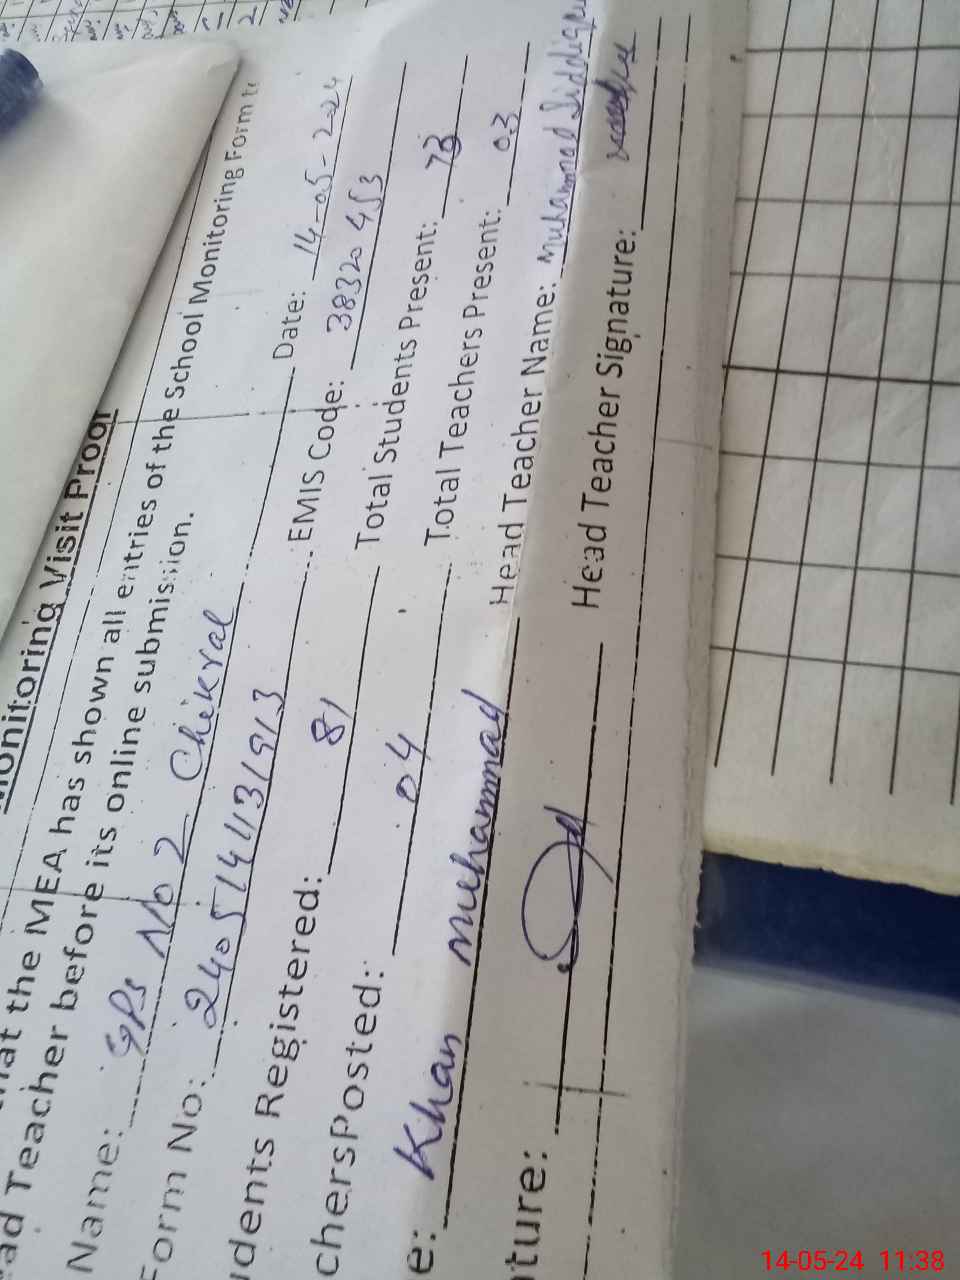 Monitoring Visit Proof
hat the MEA has shown all entries of the School Monitoring Form to
ad Teacher before its online submission.
Name: GPS No 2 Chikral Date: 14-05-2024
Form No: 2405141131913 EMIS Code: 38320453
dents Registered: 81 Total Students Present: 73
chersPosted: 04 Total Teachers Present: 03
e: Khan Muhammad Head Teacher Name: Muhammad Siddiq
ture: Head Teacher Signature:
14-05-24 11:38